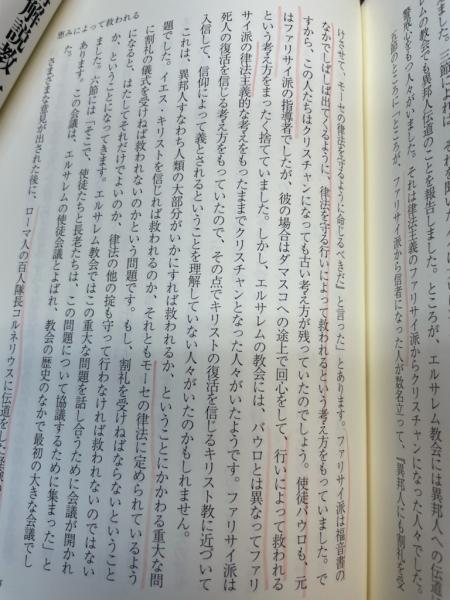 解説教
恵みによって救われる
ました。二節
教会でも異邦人伝道のことを報告しました。ところが、エルサレム教会には異邦人への伝道
をもつ人々がいました。それは律法主義のファリサイ派からクリスチャンになった人々でし
五節のところに、「ところが、ファリサイ派から信者になった人が数名立って、『異邦人にも割礼を受
けさせて、モーセの律法を守るように命じるべきだ』と言った」とあります。ファリサイ派は福音書の
なかでしばしば出てくるように、律法を守る行いによって救われるという考え方をもっていました。で
すから、この人たちはクリスチャンになっても古い考え方が残っていたのでしょう。使徒パウロも、元
はファリサイ派の指導者でしたが、彼の場合はダマスコへの途上で回心をして、行いによって救われる
という考え方をまったく捨てていました。しかし、エルサレムの教会には、パウロとは異なってファリ
サイ派の律法主義的な考えをもったままでクリスチャンとなった人々がいたようです。ファリサイ派は
死人の復活を信じる考えをもっていたので、その点でキリストの復活を信じるキリスト教に近づいて
入信して、信仰によって義とされるということを理解していない人々がいたのかもしれません。
これは、異邦人すなわち人類の大部分がいかにすれば救われるか、ということにかかわる重大な問
題でした。イエス・キリストを信じれば救われるのか、それともモーセの律法に定められているよう
に割礼の儀式を受けねば救われないのかという問題です。もし、割礼を受けねばならないということ
になると、はたしてそれだけでよいのか、律法の他の掟も守って行わなければ救われないのではない
か、ということになってきます。エルサレム教会ではこの重大な問題を話し合うために会議が開かれ
ました。六節には「そこで、使徒たちと長老たちは、この問題について協議するために集まった」と
あります。この会議は、エルサレムの使徒会議とよばれ、教会の歴史のなかで最初の大きな会議でし
た。
さまざまな意見が出された後に、ローマ人の百人隊長コルネリウスに伝道をした